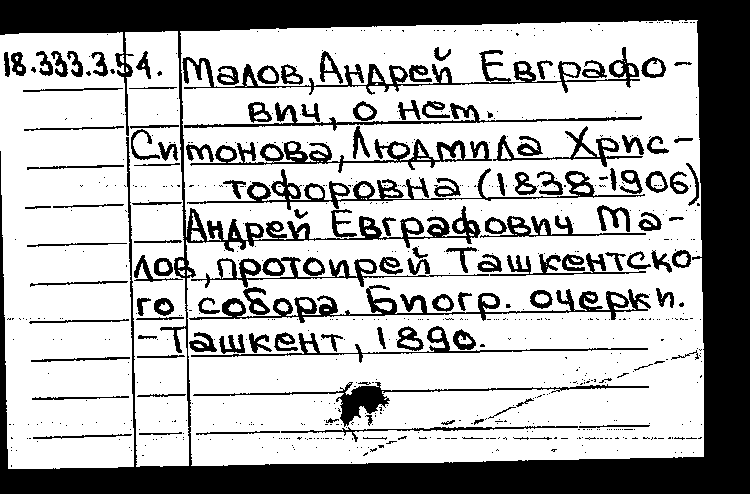 18.333.3.54. Малов, Андрей Евграфо-
вич, о нем.
Симонова, Людмила Хрис-
тофоровна (1838-1906)
Андрей Евграфович Ма-
лов, протоирей Ташкентско-
го собора. Биогр. очерки.
-Ташкент, 1890.